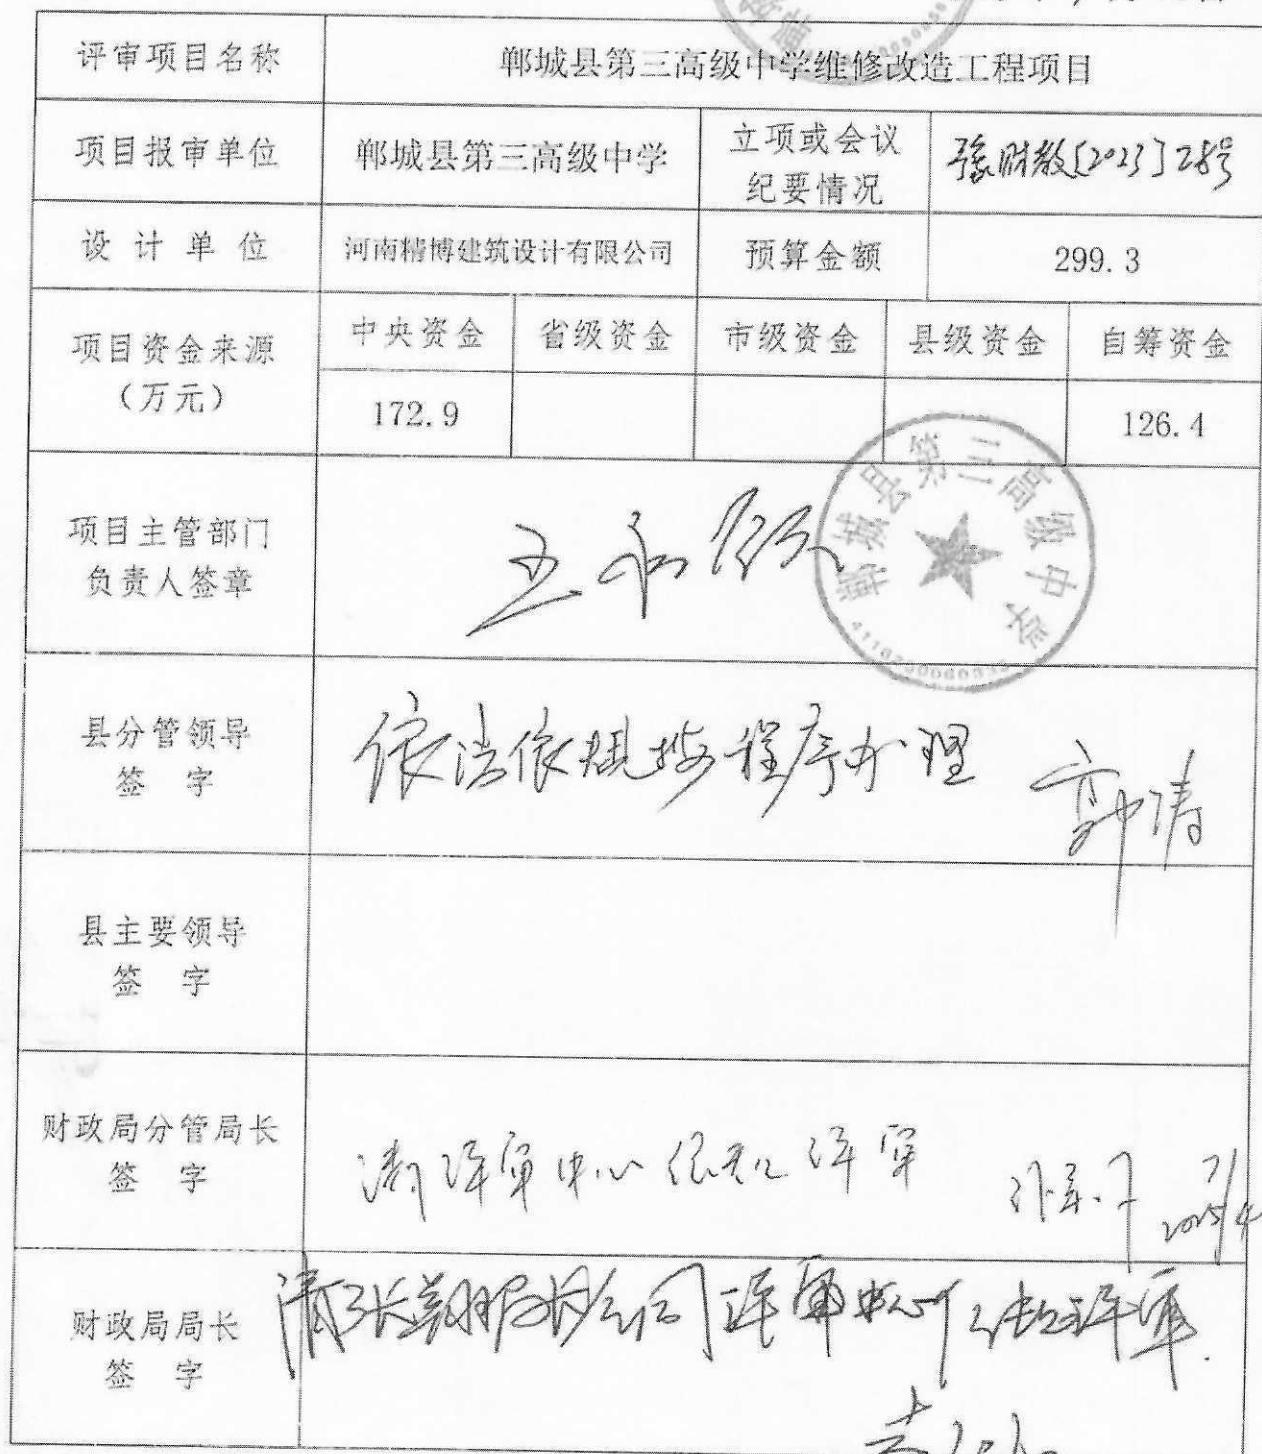 评审项目名称 郸城县第三高级中学维修改造工程项目
项目报审单位 郸城县第三高级中学 立项或会议
纪要情况 豫财教[2023]28号
设 计 单 位 河南精博建筑设计有限公司 预算金额 299.3
项目资金来源
（万元） 中央资金 省级资金 市级资金 县级资金 自筹资金
172.9 126.4
郸城县第三高级中学
项目主管部门
负责人签章 王
县分管领导
签 字 依法依规按程序办理 郭涛
县主要领导
签 字
财政局分管局长
签 字 请评审中心 评审
财政局局长
签 字 请 评审中心 评审